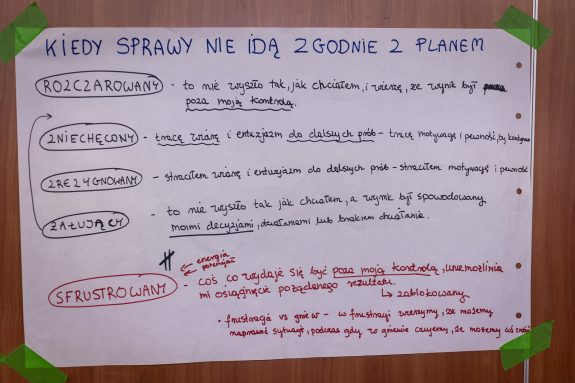 KIEDY SPRAWY NIE IDĄ ZGODNIE Z PLANEM
ROZCZAROWANY - to nie wyszło tak, jak chciałem, i wierzę, że wynik był
poza moją kontrolą.
ZNIECHĘCONY - tracę wiarę i entuzjazm do dalszych prób - tracę motywację i pewność, by
ZREZYGNOWANY - straciłem wiarę i entuzjazm do dalszych prób - straciłem motywację i pewność
ŻAŁUJĄCY - to nie wyszło tak jak chciałem, a wynik był spowodowany
moimi decyzjami, działaniami lub brakiem działania.
energia
potencjał
SFRUSTROWANY - coś co wydaje się być poza moją kontrolą, uniemożliwia
mi osiągnięcie pożądanego rezultatu.
↳ zablokowany
• frustracja vs gniew - w frustracji wierzymy, że możemy
naprawić sytuację, podczas gdy w gniewie czujemy, że możemy coś